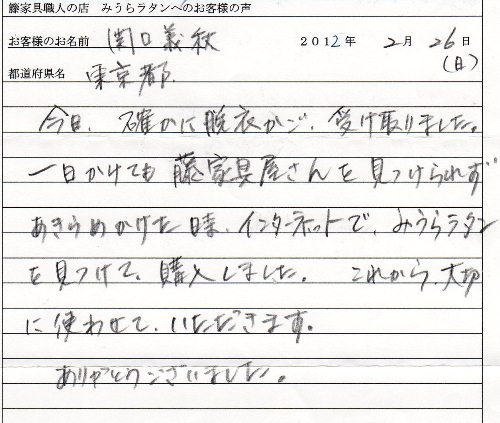 籐家具職人の店 みうらラタンへのお客様の声
お客様のお名前 関口義秋 2012年 2月 26日
(日)
都道府県名 東京都.
今日、確かに脱衣かご、受け取りました。
一日かけても藤家具屋さんを見つけられず
あきらめかけた時、インターネットで、みうらラタン
を見つけて、購入しました。 これから、大切
に使わせて、いただきます。
ありがとうございました。